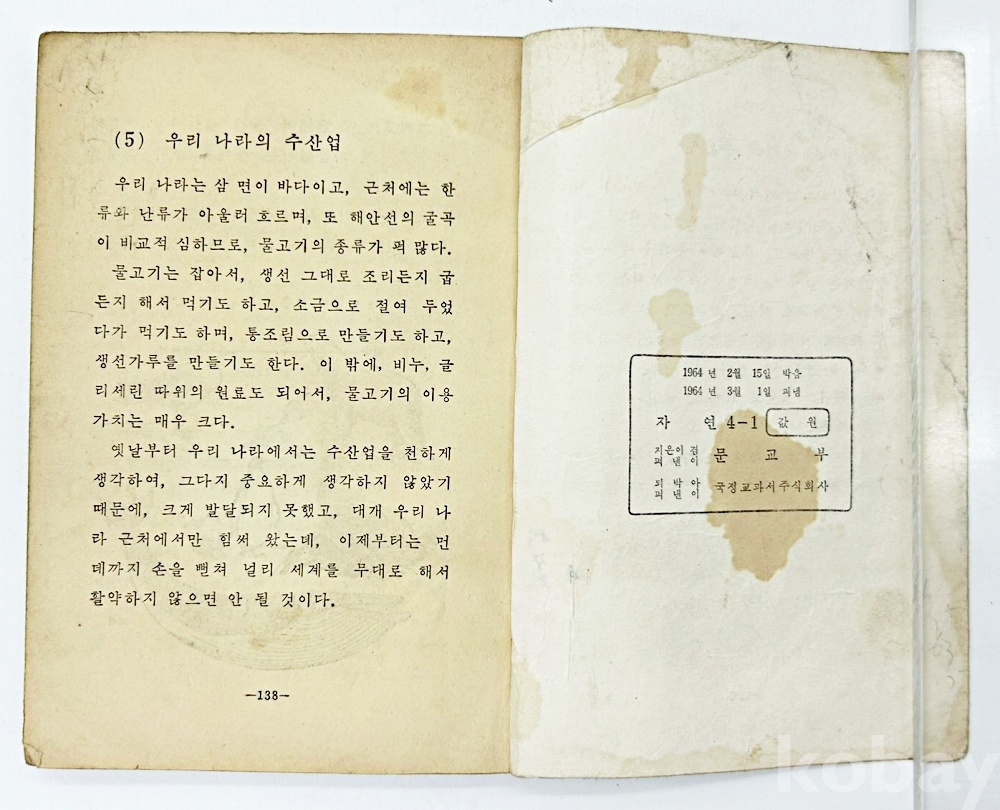 (5) 우리 나라의 수산업
우리 나라는 삼 면이 바다이고, 근처에는 한
류와 난류가 아울러 흐르며, 또 해안선의 굴곡
이 비교적 심하므로, 물고기의 종류가 퍽 많다.
물고기는 잡아서, 생선 그대로 조리든지 굽
든지 해서 먹기도 하고, 소금으로 절여 두었
다가 먹기도 하며, 통조림으로 만들기도 하고,
생선가루를 만들기도 한다. 이 밖에, 비누, 글
리세린 따위의 원료도 되어서, 물고기의 이용
가치는 매우 크다.
옛날부터 우리 나라에서는 수산업을 천하게
생각하여, 그다지 중요하게 생각하지 않았기
때문에, 크게 발달되지 못했고, 대개 우리 나
라 근처에서만 힘써 왔는데, 이제부터는 먼
데까지 손을 뻗쳐 널리 세계를 무대로 해서
활약하지 않으면 안 될 것이다.
—138—
1964 년 2월 15일 박음
1964 년 3월 1일 펴냄
자 연 4-1 값 원
지은이 겸
펴낸이 문교부
되박아
펴낸이 국정교과서주식회사
kobay